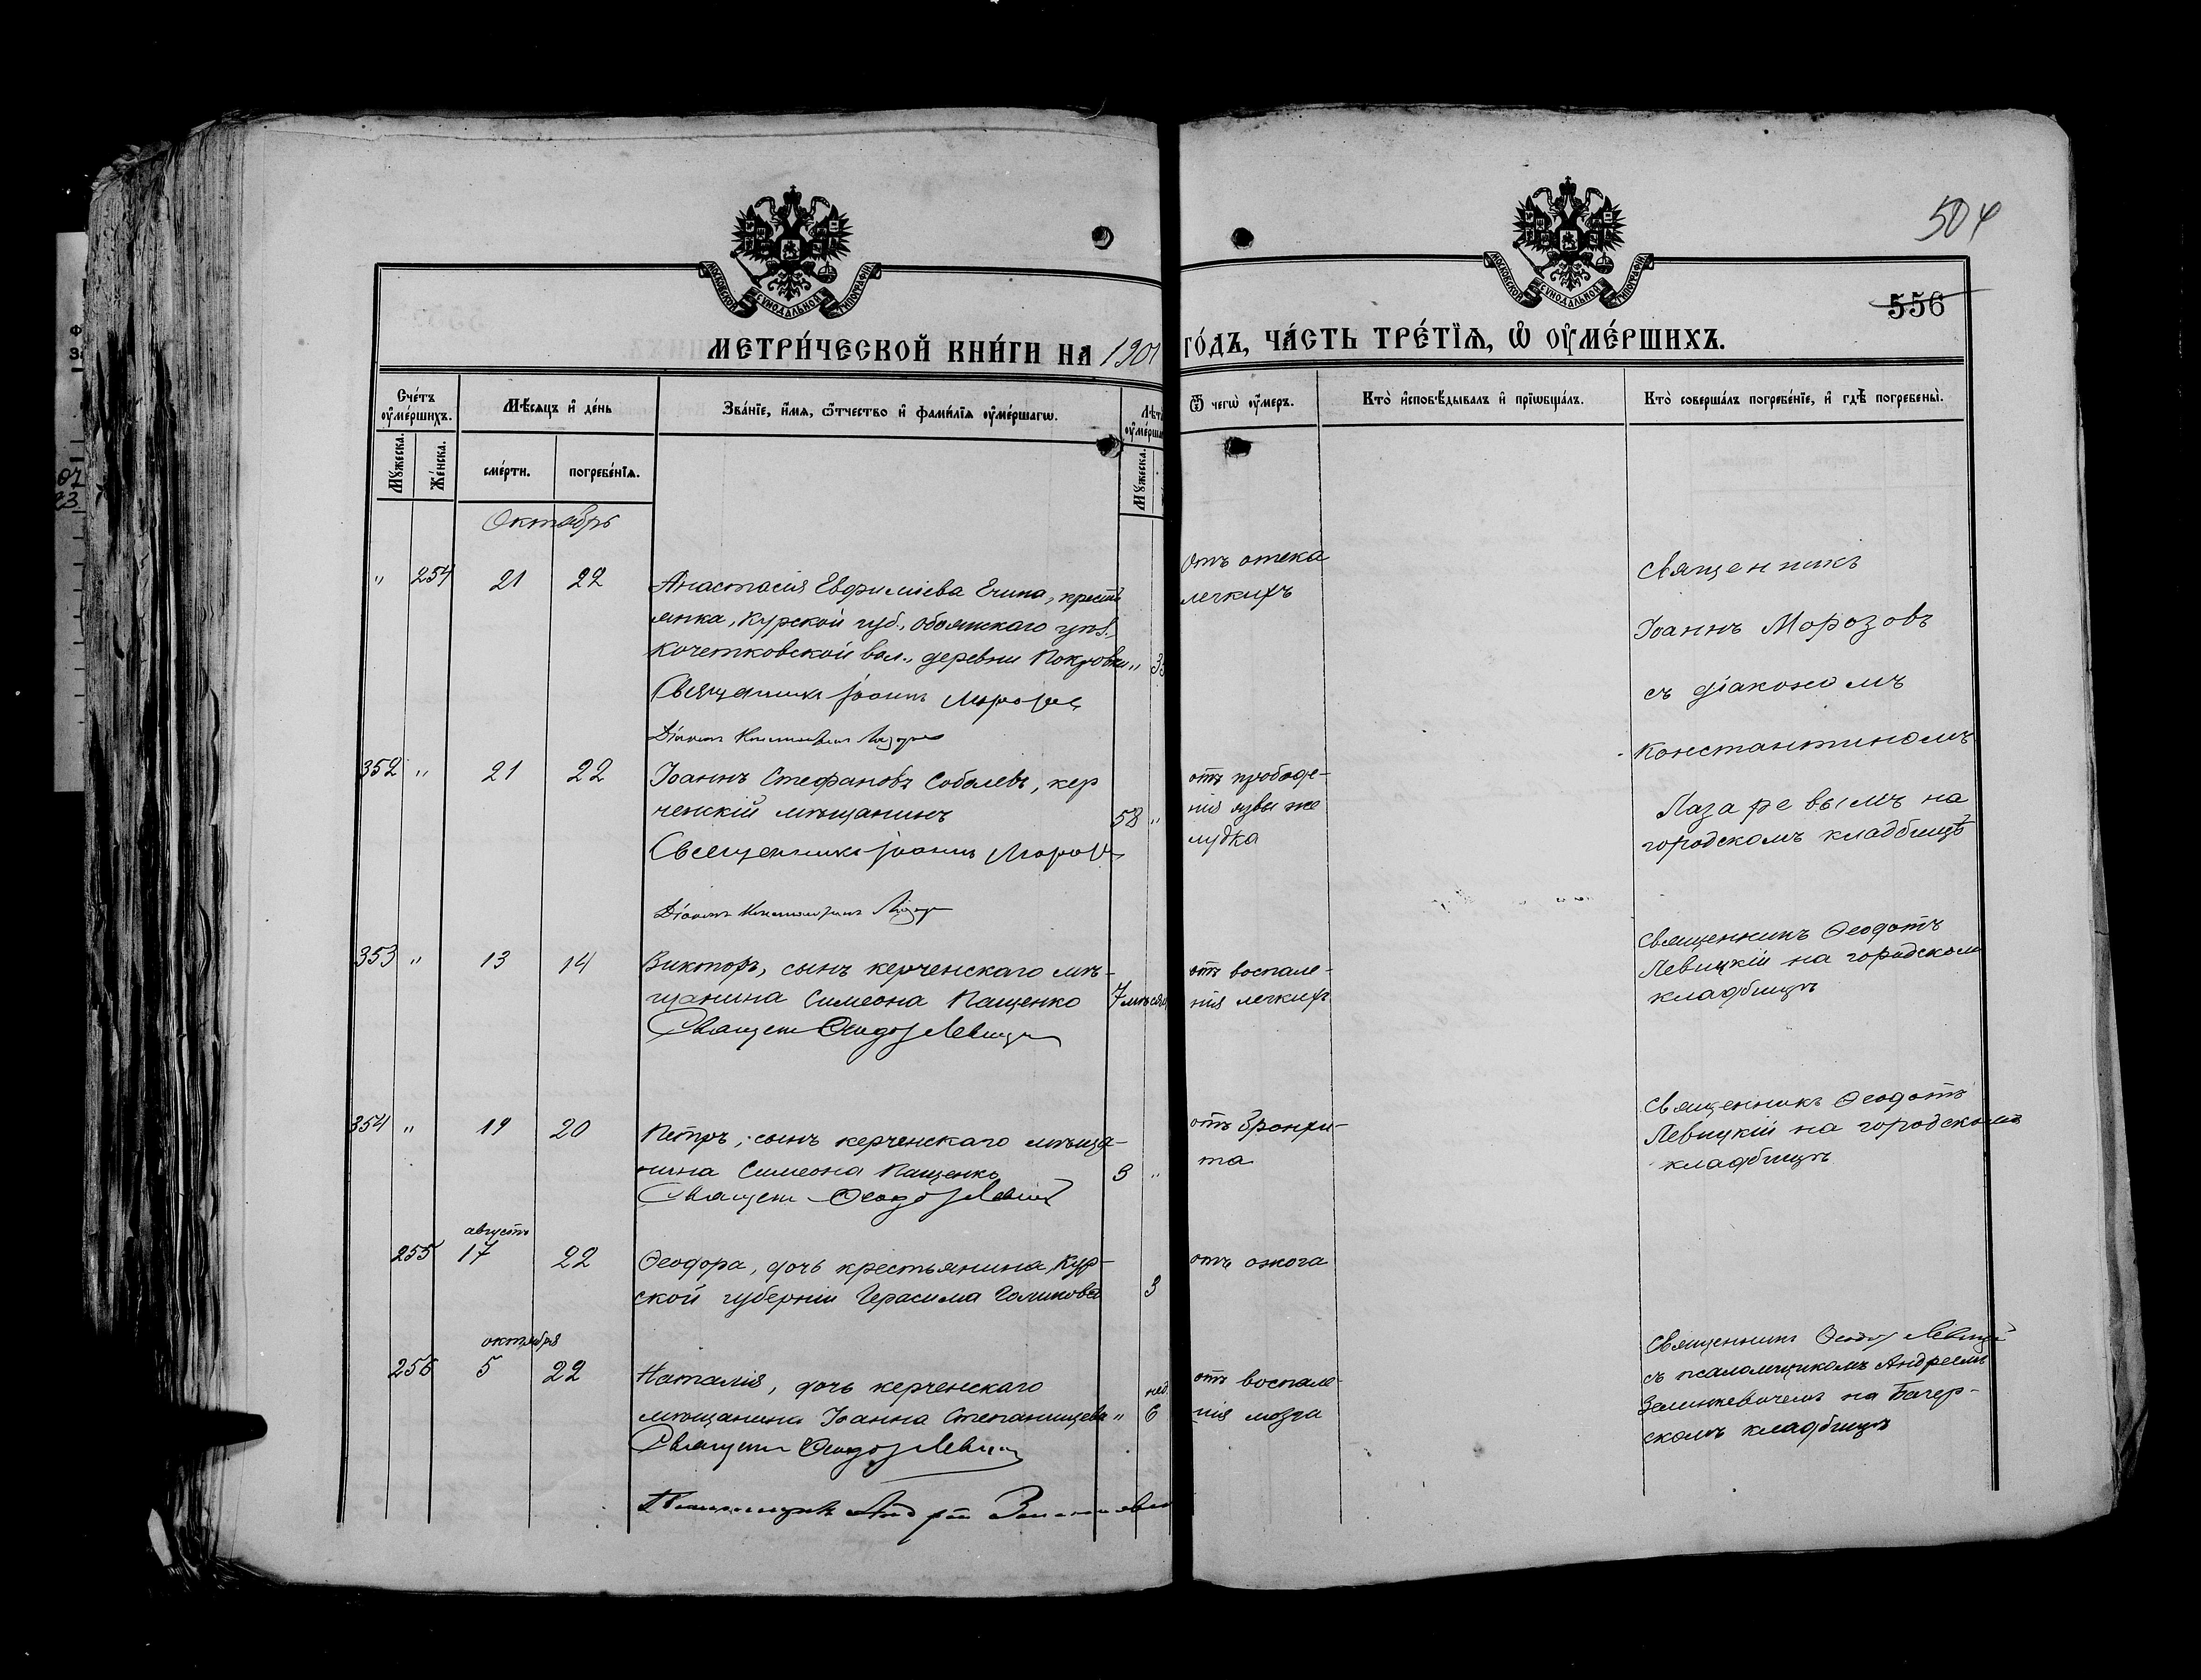 504
556
МОСКОВСКОЙ СѴНОДАЛЬНОЙ ТИПОГРАФІИ
МОСКОВСКОЙ СѴНОДАЛЬНОЙ ТИПОГРАФІИ
МЕТРИ́ЧЕСКОЙ КНИ́ГИ НА 1901 ГО́ДЪ, ЧА́СТЬ ТРЕ́ТЇѦ, Ѽ ОУ҆МЕ́РШИХЪ.
Сче́тъ оу҆ме́ршихъ.
Мꙋ́жеска.
Же́нска.
Мѣ́сяцъ и҆ де́нь
сме́рти.
погребе́нїѧ.
Зва́нїе, и҆́мѧ, ѻ҆́тчество и҆ фами́лїѧ оу҆ме́ршагѡ.
Лѣт
оу҆ме́рша
Мꙋ́жеска.
Ѿ чегѡ̀ оу҆́меръ.
Кто̀ и҆сповѣ́дывалъ и҆ прїѡбща́лъ.
Кто̀ соверша́лъ погребе́нїе, и҆ гдѣ̀ погребены̀.
Октябрь
" 254 21 22
Анастасія Евфиміева Ечина, крестъ
янка, Курской губ., Обоянскаго уѣз.,
Кочетковской вол., деревни Покровки " 35
Священникъ Іоаннъ Морозовъ
Діаконъ Константинъ Лазаревъ
отъ отека
легкихъ
Священникъ
Іоаннъ Морозовъ
съ діакономъ
Константиномъ
Лазаревымъ на
городскомъ кладбищѣ
352 " 21 22
Іоаннъ Стефановъ Соболевъ, кер
ченскій мѣщанинъ 58 "
Священникъ Іоаннъ Морозовъ
Діаконъ Константинъ Лазаревъ
отъ прободе-
нія язвы же
лудка
353 " 13 14
Викторъ, сынъ керченскаго мѣ-
щанина Симеона Пащенко 7 мѣсяц
Священ Ѳеодотъ Левицкій
отъ воспале-
нія легкихъ
Священникъ Ѳеодотъ
Левицкій на городском
кладбищѣ
354 " 19 20
Петръ, сынъ керченскаго мѣща-
нина Симеона Пащенко 3 "
Священ Ѳеодотъ Левицкій
отъ бронхи-
та
Священникъ Ѳеодотъ
Левицкій на городскомъ
кладбищѣ
августъ
255 17 22
Ѳеодора, дочь крестьянина Кур-
ской губерніи Герасима Голикова 3
отъ ожога
октября
256 5 22
Наталія, дочь керченскаго
мѣщанина Іоанна Степанищева " 6 нед.
Священ Ѳеодотъ Левицкій
Псаломщикъ Андрей
отъ воспале-
нія мозга
Священникъ Ѳеодотъ Левицкій
съ псаломщикомъ Андреемъ
на Багер-
скомъ кладбищѣ